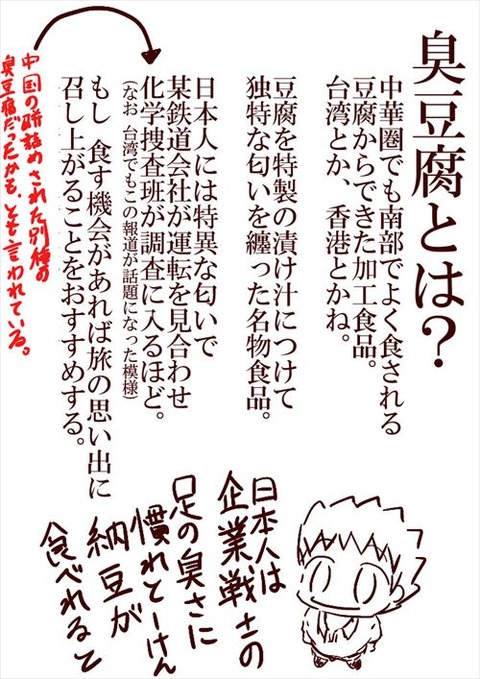 臭豆腐とは？
中華圏でも南部でよく食される
豆腐からできた加工食品。
台湾とか、香港とかね。
豆腐を特製の漬け汁につけて
独特な匂いを纏った名物食品。
日本人には特異な匂いで
某鉄道会社が運転を見合わせ
化学捜査班が調査に入るほど。
(なお 台湾でもこの報道が話題になった模様)
もし 食す機会があれば旅の思い出に
召し上がることをおすすめする。
中国の瓶詰めされた別種の
臭豆腐だったかも、とも言われている。
日本人は
企業戦士の
足の臭さに
慣れとーけん
納豆が
食べれると